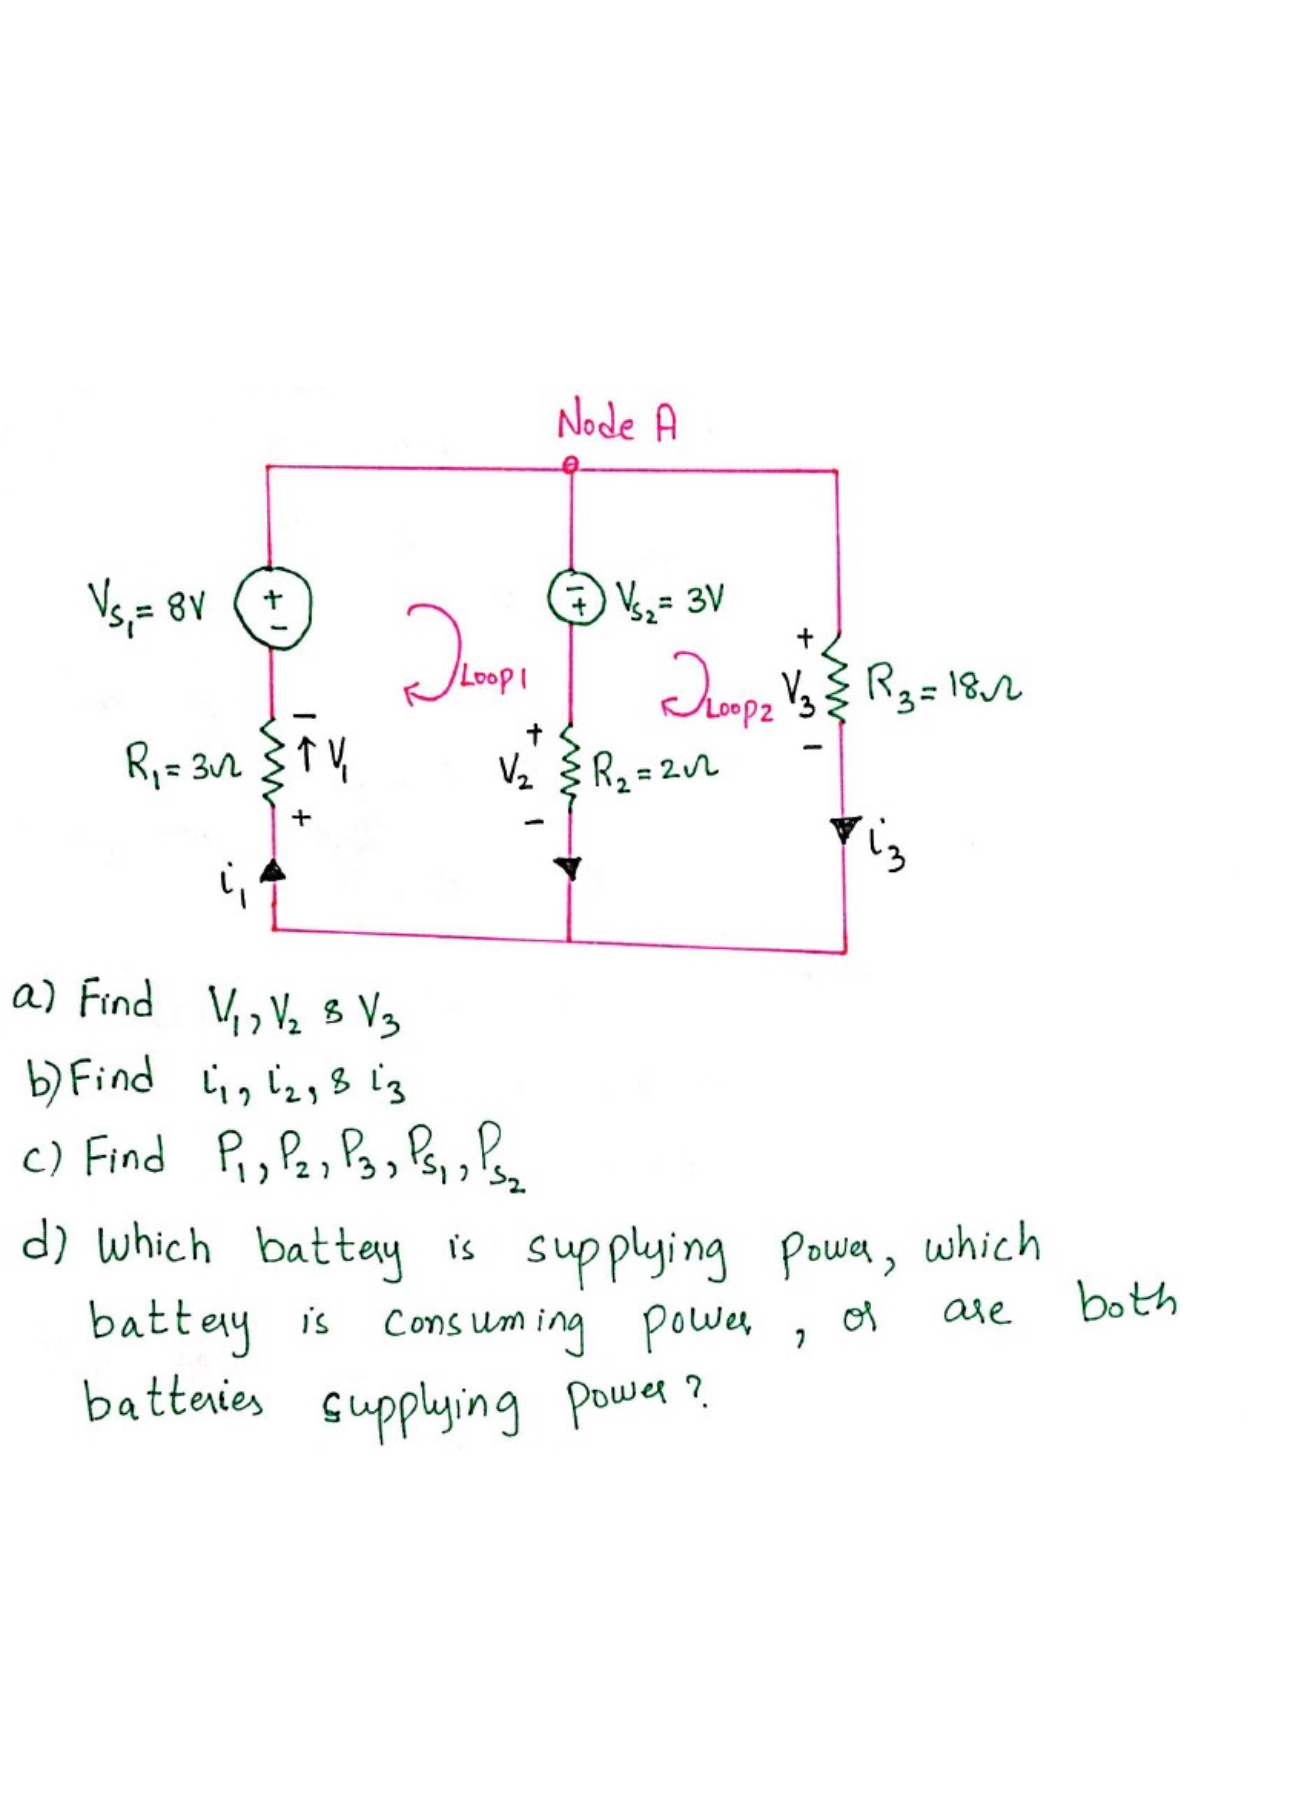 Node A
Vs₁= 8V
+
-
-
+
Vs₂= 3V
Loop1
Loop2
+
V₃
-
R₃= 18Ω
R₁= 3Ω
-
↑ V₁
+
+
V₂
-
R₂= 2Ω
i₁
i₃
a) Find V₁, V₂ & V₃
b) Find i₁, i₂, & i₃
c) Find P₁, P₂, P₃, Ps₁, Ps₂
d) Which battery is supplying power, which
battery is consuming power, or are both
batteries supplying power?